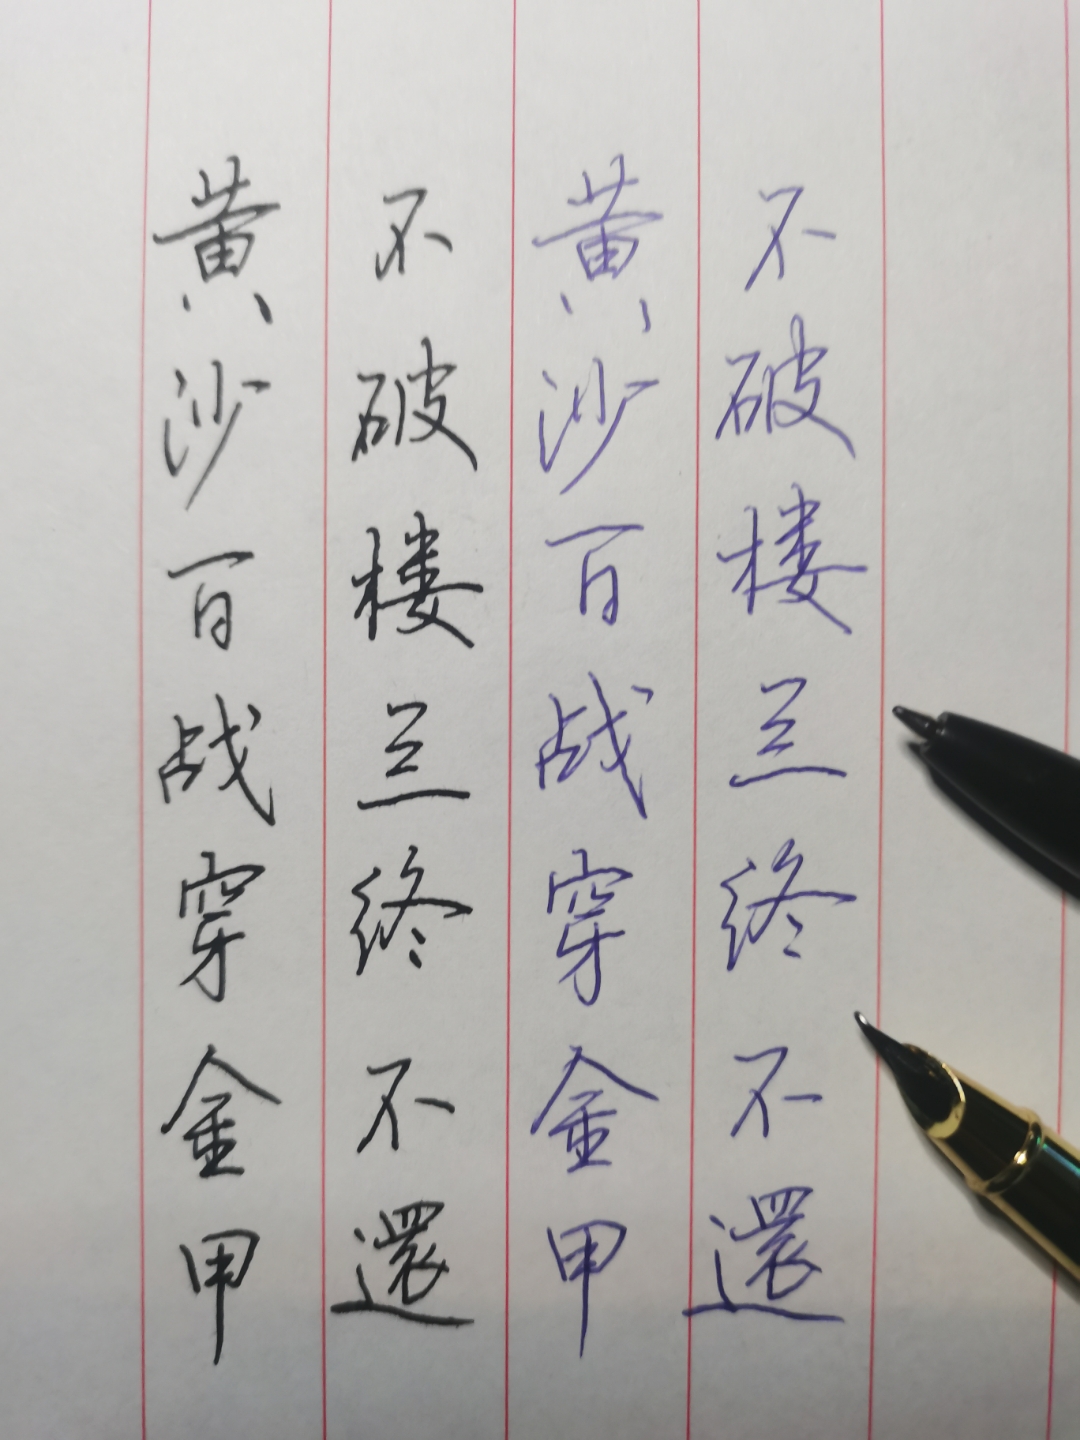 黄沙百战穿金甲
不破楼兰终不還
黄沙百战穿金甲
不破楼兰终不還